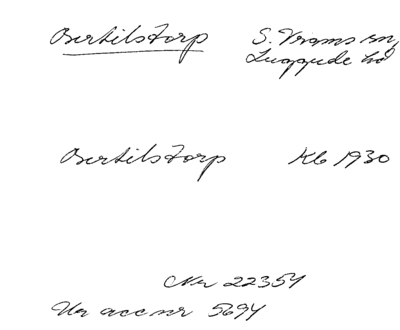 Bertilstorp S. Vrams sn,
Luggude hd
Bertilstorp Kb 1930
Nr 22354
Ur acc nr 5694